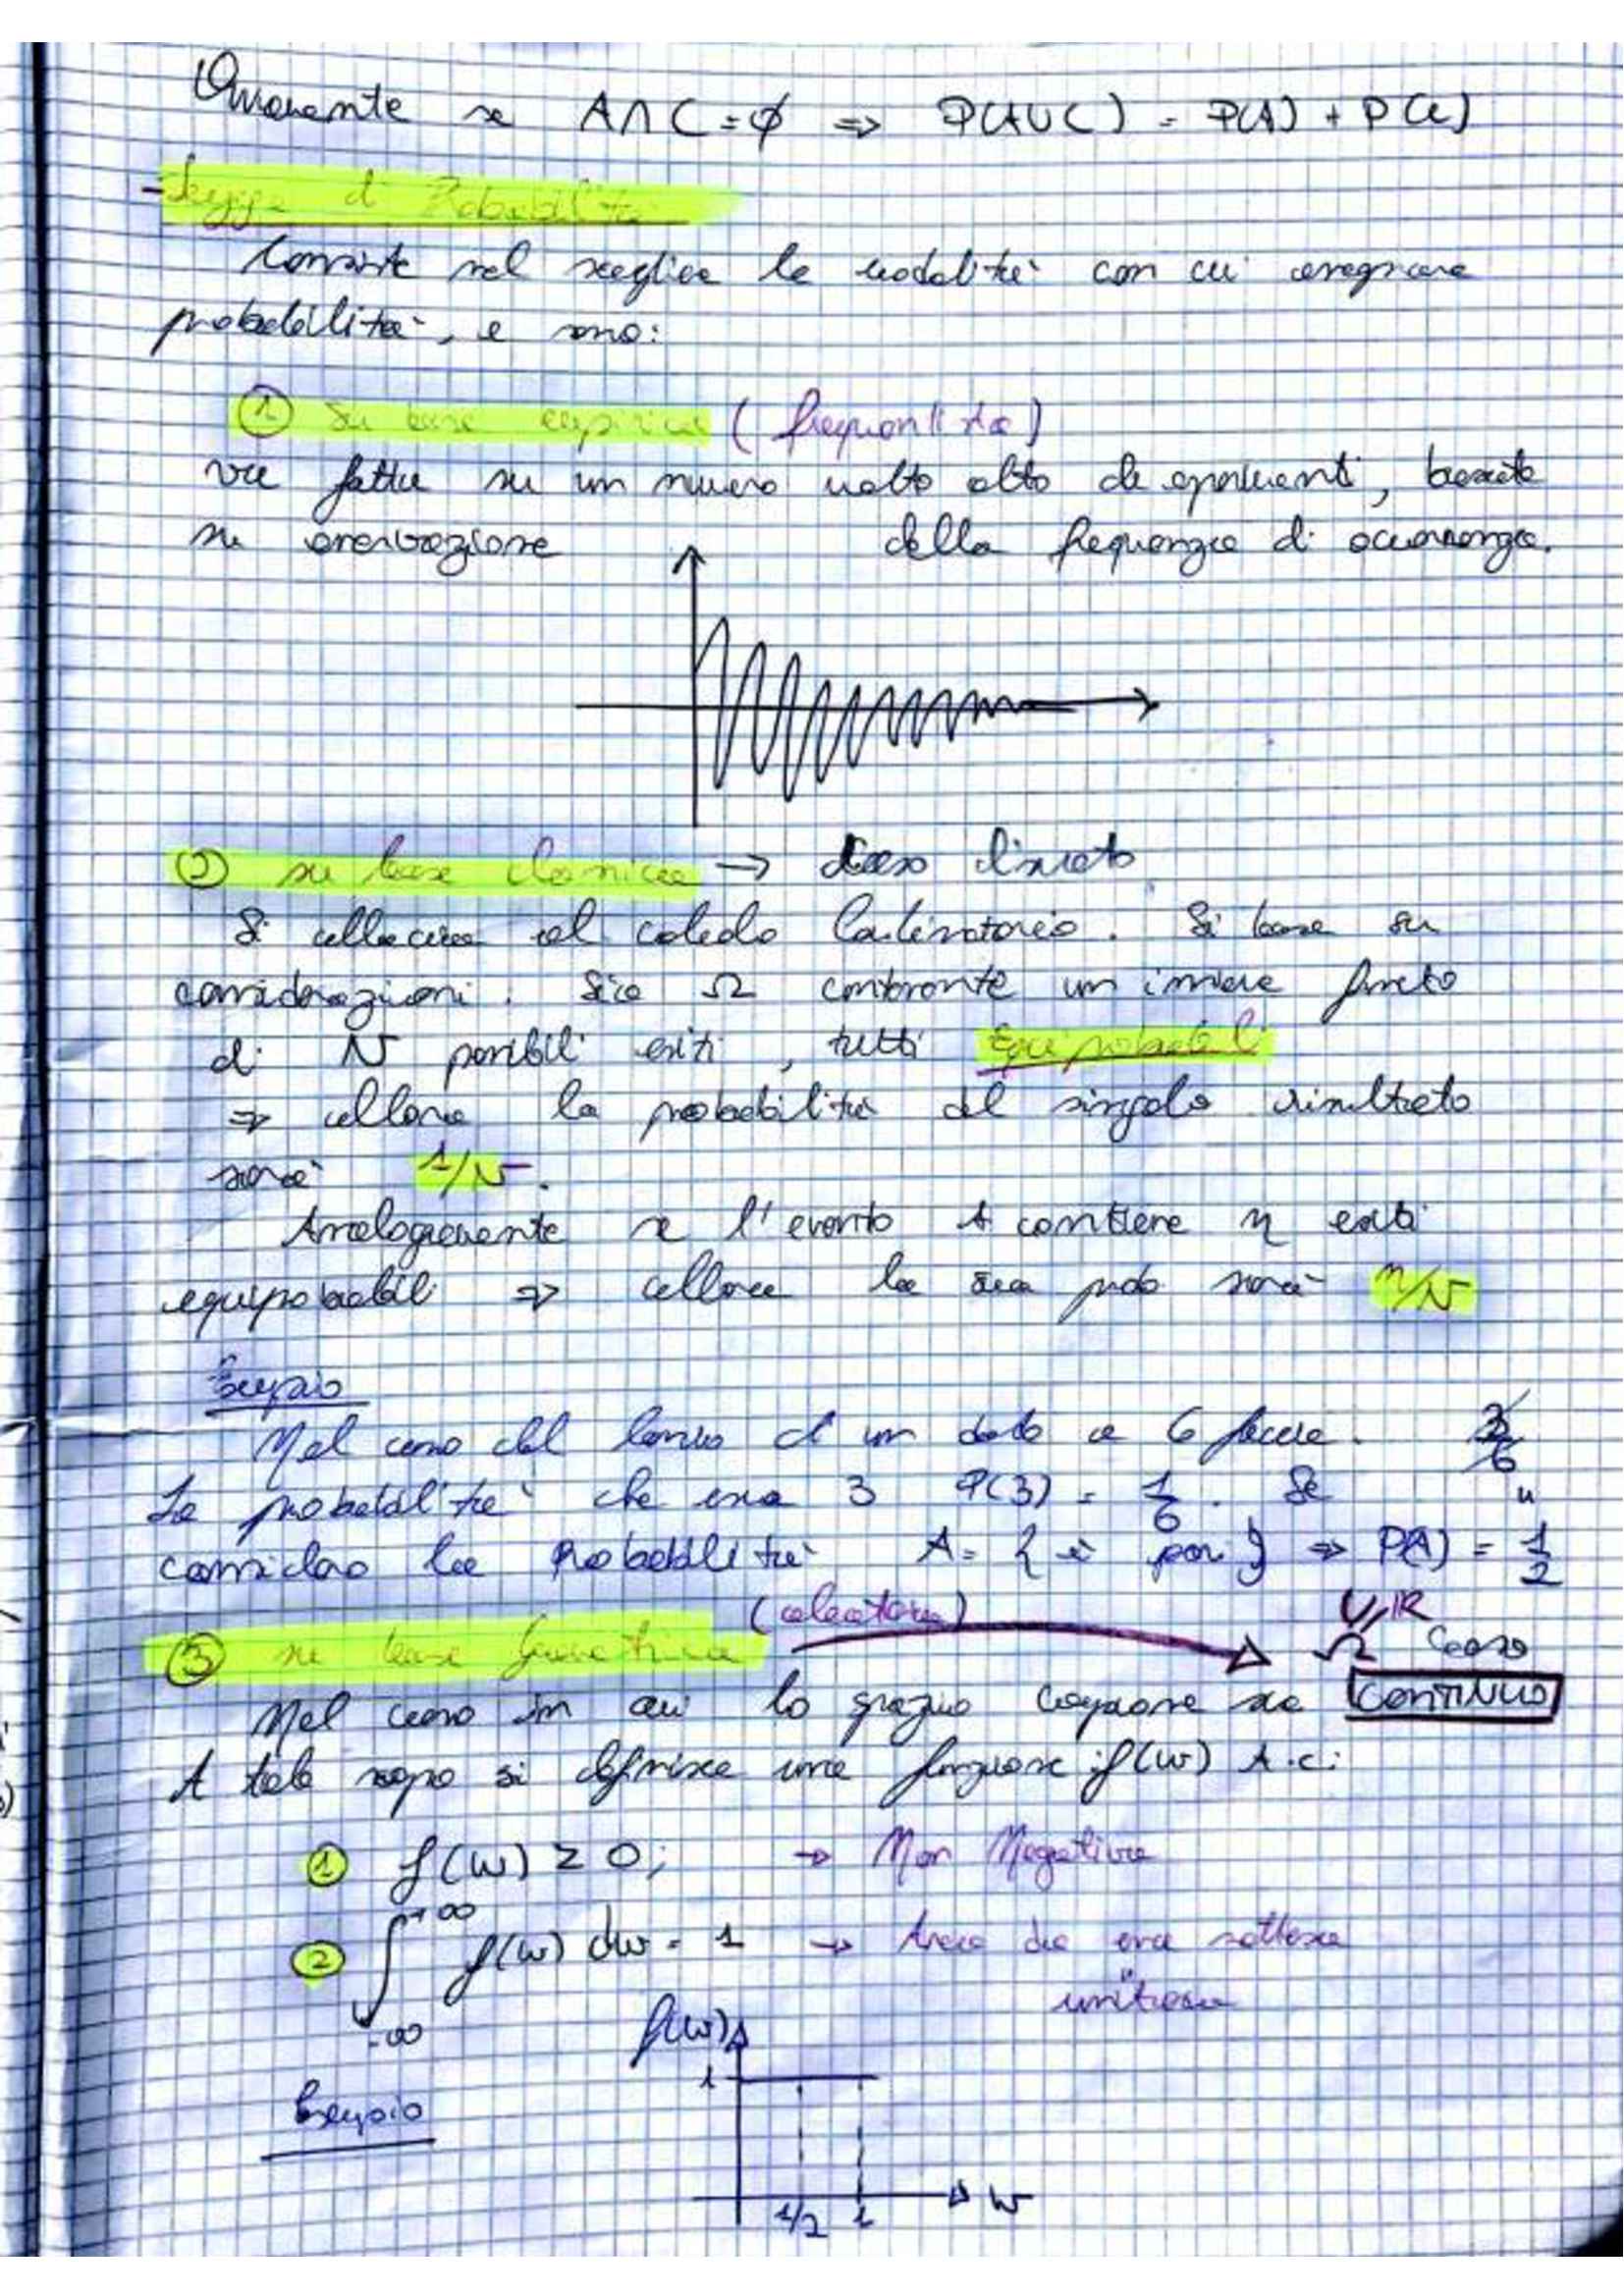 Ovviamente se A∩C=∅ ⇒ P(A∪C) = P(A) + P(C)
- Legge di Probabilità
Consiste nel scegliere le modalità con cui assegnare
probabilità, e sono:
① Su base empirica (frequentista)
va fatta su un numero molto alto di esperimenti, basata
su osservazione della frequenza di occorrenza.
② su base classica → Caso discreto
Si allaccia al calcolo Combinatorio. Si basa su
considerazioni. Sia Ω contenente un insieme finito
di N possibili esiti, tutti Equiprobabili
⇒ allora la probabilità del singolo risultato
sarà 1/N.
Analogamente se l'evento A contiene n esiti
equiprobabili ⇒ allora la sua prob sarà n/N
Esempio
Nel caso del lancio di un dado a 6 facce. 3/6
La probabilità che esca 3 P(3) = 1/6. Se "
considero la Probabilità A = { è pari } ⇒ P(A) = 1/2
(aleatoria) ℝ
③ su base geometrica Ω Caso
Nel caso in cui lo spazio campione sia CONTINUO
A tale scopo si definisce una funzione f(w) t.c.:
① f(w) ≥ 0; → Non Negativa
② ∫ +∞ -∞ f(w) dw = 1 → Area da essa sottesa
unitaria
f(w)
1
Esempio
w
1/2 1